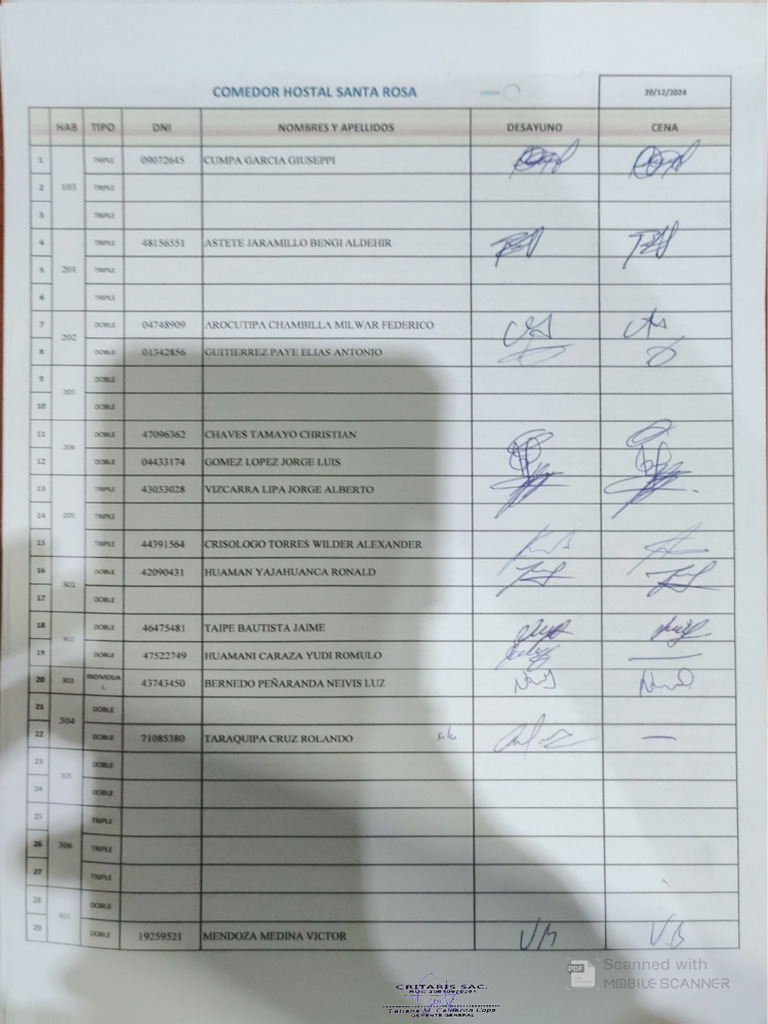 COMEDOR HOSTAL SANTA ROSA
20/12/2024
HAB TIPO DNI NOMBRES Y APELLIDOS DESAYUNO CENA
1 TRIPLE 09072645 CUMPA GARCIA GIUSEPPI
2 103 TRIPLE
3 TRIPLE
4 TRIPLE 48156551 ASTETE JARAMILLO BENGI ALDEHIR
5 201 TRIPLE
6 TRIPLE
7 202 DOBLE 04748909 AROCUTIPA CHAMBILLA MILWAR FEDERICO
8 DOBLE 01342856 GUITIERREZ PAYE ELIAS ANTONIO
9 203 DOBLE
10 DOBLE
11 204 DOBLE 47096362 CHAVES TAMAYO CHRISTIAN
12 DOBLE 04433174 GOMEZ LOPEZ JORGE LUIS
13 TRIPLE 43033028 VIZCARRA LIPA JORGE ALBERTO
14 205 TRIPLE
15 TRIPLE 44391564 CRISOLOGO TORRES WILDER ALEXANDER
16 301 DOBLE 42090431 HUAMAN YAJAHUANCA RONALD
17 DOBLE
18 302 DOBLE 46475481 TAIPE BAUTISTA JAIME
19 DOBLE 47522749 HUAMANI CARAZA YUDI ROMULO
20 303 INDIVIDUAL 43743450 BERNEDO PEÑARANDA NEIVIS LUZ
21 304 DOBLE
22 DOBLE 71085380 TARAQUIPA CRUZ ROLANDO
23 305 DOBLE
24 DOBLE
25 TRIPLE
26 306 TRIPLE
27 TRIPLE
28 401 DOBLE
29 DOBLE 19259521 MENDOZA MEDINA VICTOR VM V.B
PDF Scanned with
MOBILE SCANNER
CRITARIS SAC.
Tatiana M. Calderon Copa
GERENTE GENERAL